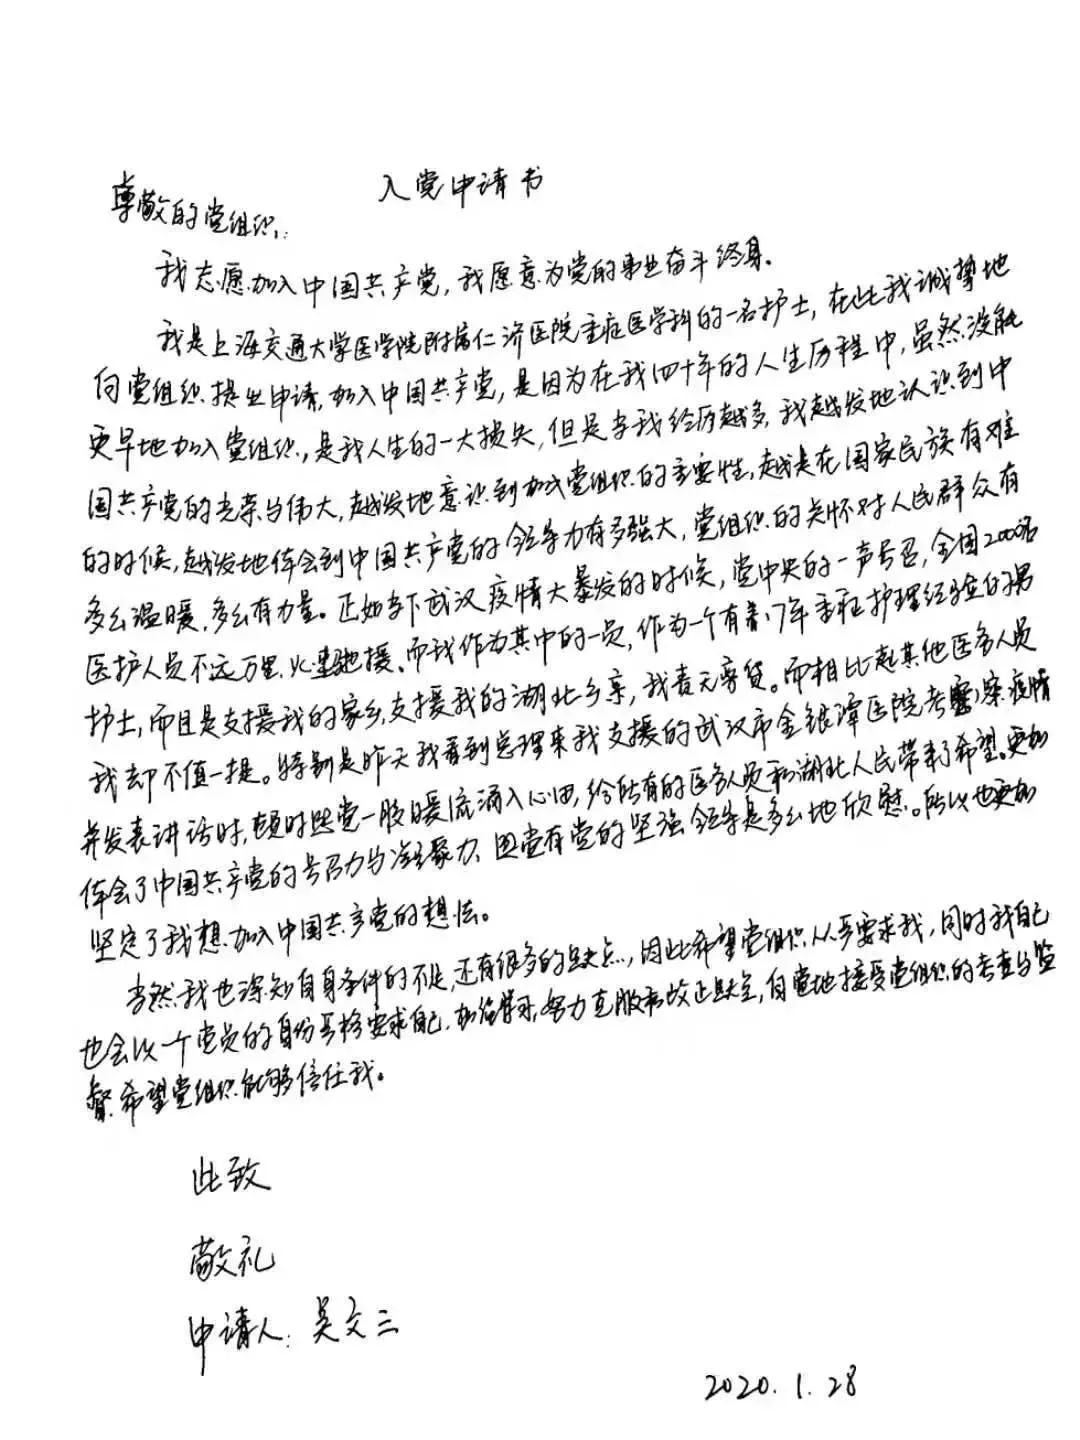 入党申请书
尊敬的党组织:
我志愿加入中国共产党,我愿意为党的事业奋斗终身。
我是上海交通大学医学院附属仁济医院重症医学科的一名护士,在此我诚挚地
向党组织提出申请,加入中国共产党,是因为在我四十年的人生历程中,虽然没能
更早地加入党组织,是我人生的一大损失,但是李我经历越多,我越发地认识到中
国共产党的光荣与伟大,越发地意识到加入党组织的重要性,越是在国家民族有难
的时候,越发地体会到中国共产党的领导力有多强大,党组织的关怀对人民群众有
多么温暖,多么有力量。正如当下武汉疫情大暴发的时候,党中央的一声号召,全国2000名
医护人员不远万里,火速驰援、而我作为其中的一员,作为一个有着17年重症护理经验的男
护士,而且是支援我的家乡,支援我的湖北乡亲,我责无旁贷。而相比起其他医务人员
我却不值一提。特别是昨天我看到总理来我支援的武汉市金银潭医院考察疫情
并发表讲话时,顿时觉一股暖流涌入心田,给所有的医务人员和湖北人民带来了希望。更加
体会了中国共产党的号召力与凝聚力、因党有党的坚强领导是多么地欣慰。所以也更加
坚定了我想加入中国共产党的想法。
当然我也深知自身条件的不足,还有很多的缺点,因此希望党组织从严要求我,同时我自己
也会以一个党员的身份严格要求自己,加倍学习,努力克服和改正缺点,自觉地接受党组织的考查与监
督.希望党组织能够信任我。
此致
敬礼
申请人:吴文三
2020.1.28